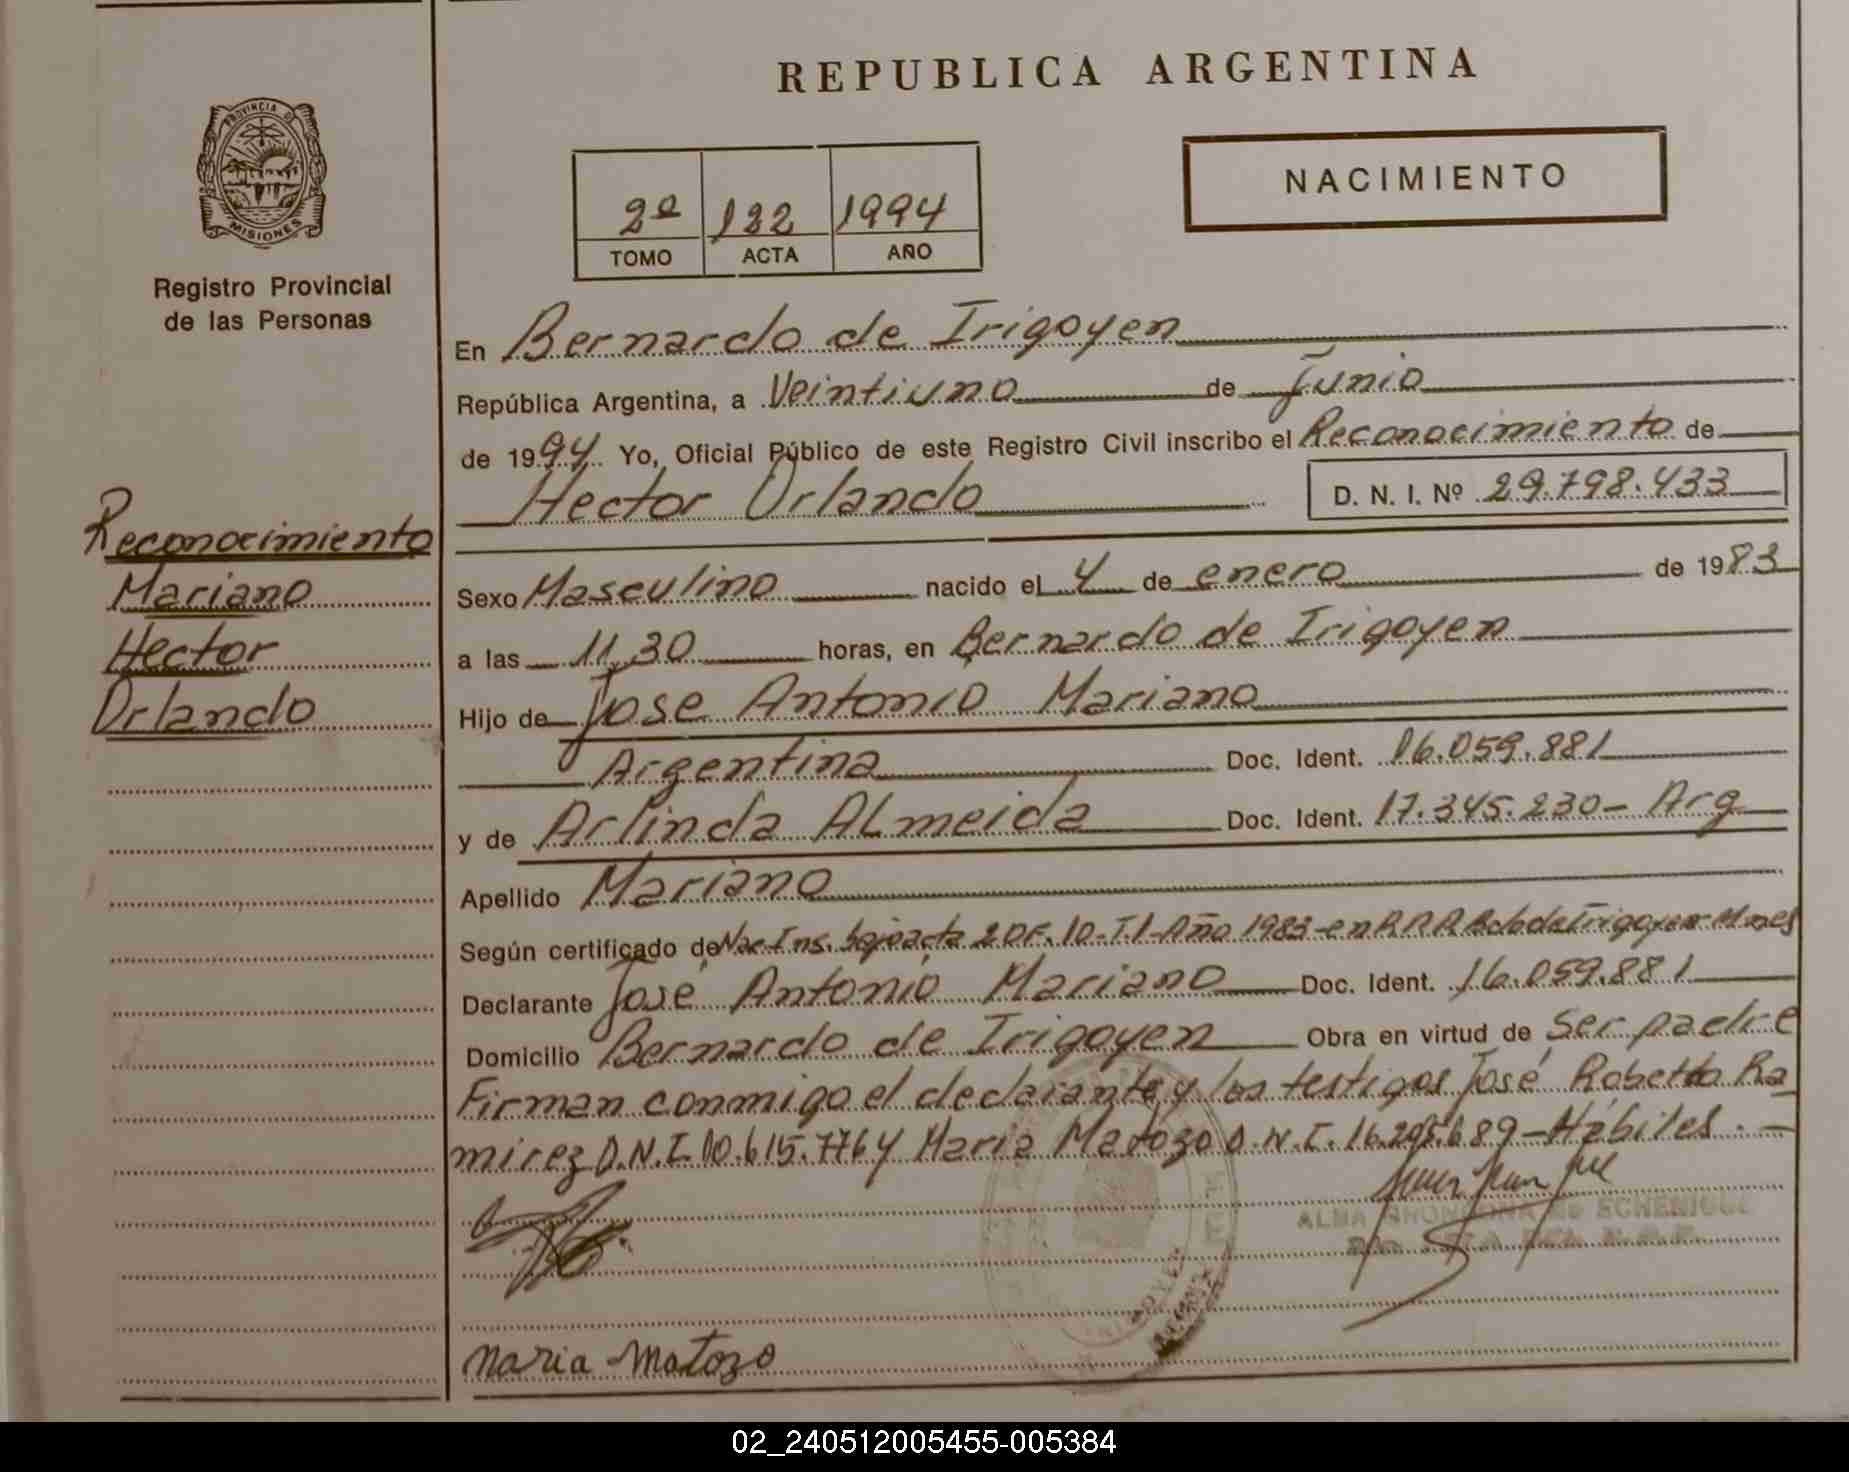 REPUBLICA ARGENTINA
PROVINCIA DE
MISIONES
Registro Provincial
de las Personas
2º 122 1994
TOMO ACTA AÑO
NACIMIENTO
En Bernardo de Irigoyen
República Argentina, a Veintiuno de Junio
de 1994 Yo, Oficial Público de este Registro Civil inscribo el Reconocimiento de
Hector Orlando D. N. I. Nº 29.798.433
Reconocimiento
Mariano
Hector
Orlando
Sexo Masculino nacido el 4 de enero de 1983
a las 11,30 horas, en Bernardo de Irigoyen
Hijo de Jose Antonio Mariano
Argentina Doc. Ident. 16.059.881
y de Arlinda ALmeida Doc. Ident. 17.345.230- Arg
Apellido Mariano
Según certificado de Nac Ins. bajo acta 20 F. 10-T.1-Año 1983-en de Irigoyen-Mnes
Declarante José Antonio Mariano Doc. Ident. 16.059.881
Domicilio Bernardo de Irigoyen Obra en virtud de Ser padre
Firman conmigo el declarante y los testigos José Roberto Ra
mirez D.N.I. 10.615.776 y Maria Matozo D.N.I. 16.295.689-Hábiles.-
ALBA DE ECHENIQUE
Maria Matozo
02_240512005455-005384